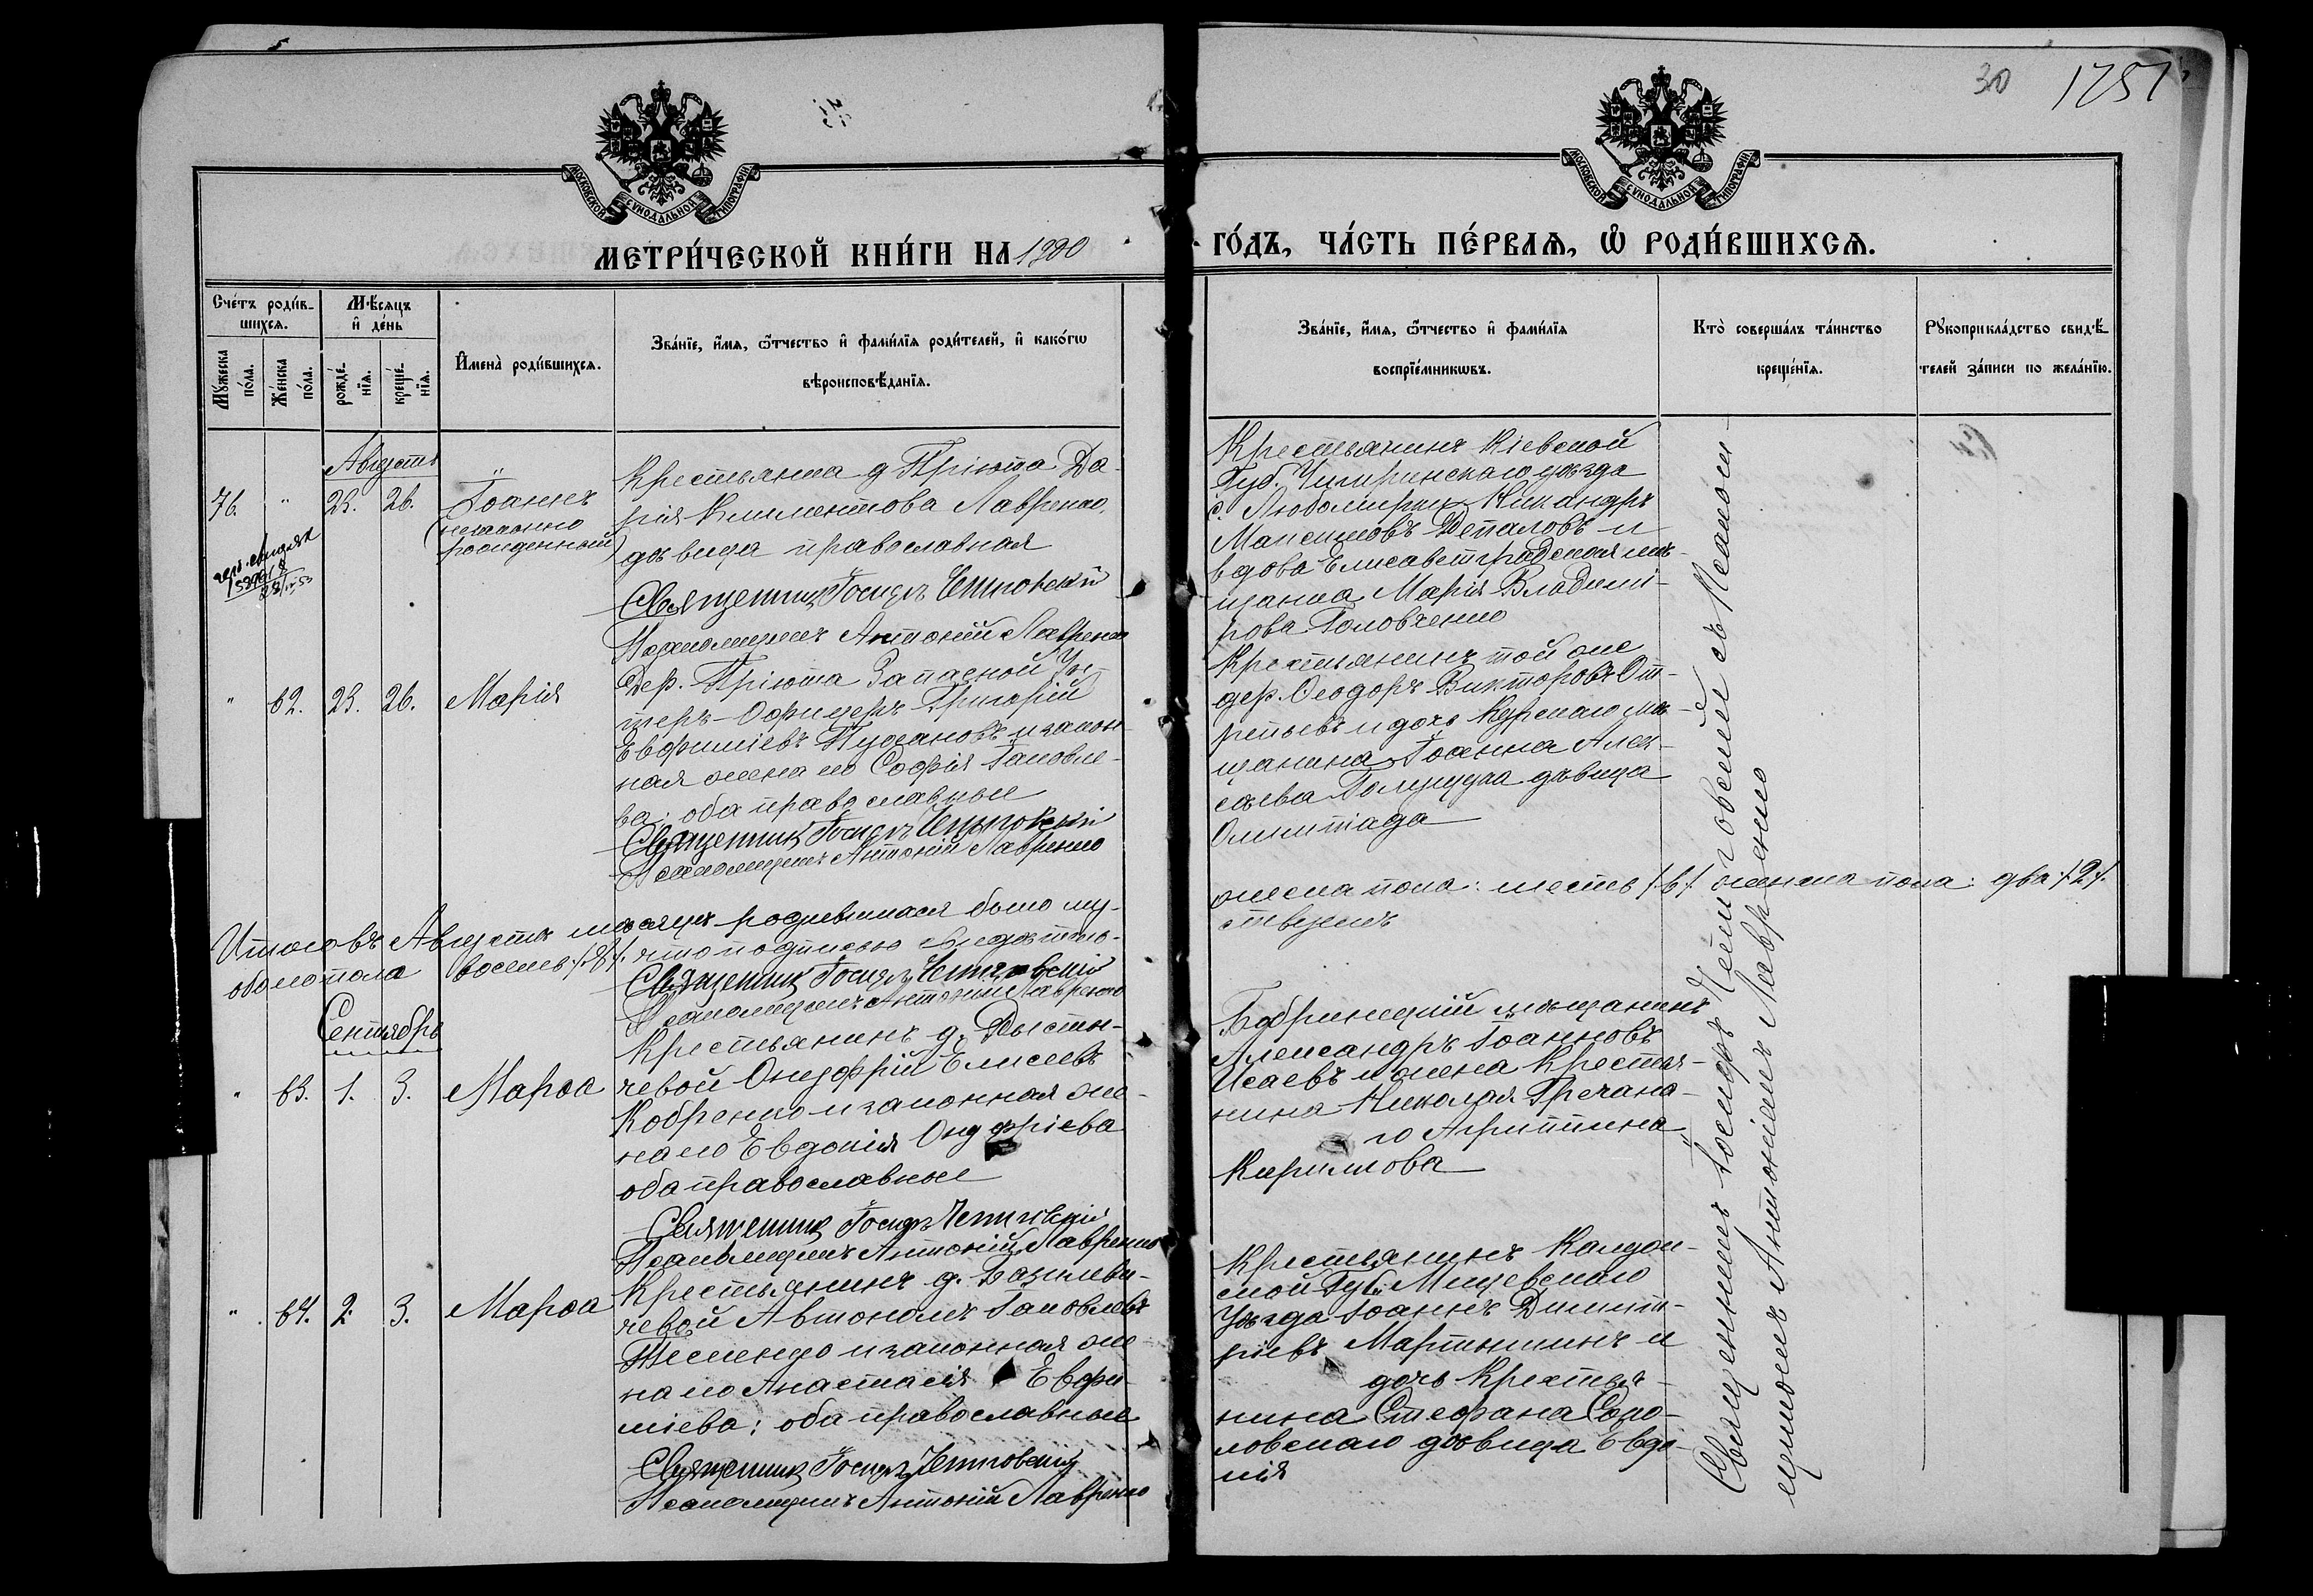 30 1251
МОСКОВСКОЙ СУНОДАЛЬНОЙ ТИПОГРАФІИ
МОСКОВСКОЙ СУНОДАЛЬНОЙ ТИПОГРАФІИ
МЕТРИ́ЧЕСКОЙ КНИ́ГИ НА 1900
ГО́ДЪ, ЧА́СТЬ ПЕ́РВАЯ, Ѿ РОДИ́ВШИХСЯ.
Сче́тъ роди́в-
шихся.
Мѣсяцъ
и де́нь
Мꙋ́жеска
по́ла.
Же́нска
по́ла.
рожде́-
нїя.
креще́-
нїя.
Имена̀ роди́вшихся.
Зва́нїе, и́мя, ѻ́тчество и фами́лїя роди́телей, и како́гѡ
вѣроисповѣ́данїя.
Зва́нїе, и́мя, ѻ́тчество и фами́лїя
воспрїе́мникѡвъ.
Кто̀ соверша́лъ та́инство
креще́нїя.
Рꙋкоприкла́дство свидѣ́-
телей за́писи по жела́нїю.
Августъ
76. " 25. 26. Іоаннъ
(незаконно
рожденный)
Крестьянка д. Пріюта Да-
рія Климентова Лавренко,
дѣвица православная
Священникъ Іосифъ Чеховскій
Псаломщикъ Антоній Лавренко
Крестьянинъ Кіевской
Губ. Чигиринскаго уѣзда
с. Любомирки Никандръ
Максимовъ Депаловъ и
вдова Елисаветградская мѣ-
щанка Марія Владимі-
рова Головченко
" 62. 25. 26. Марія
Дер. Пріюта Запасной Ун-
теръ-Офицеръ Григорій
Евфиміевъ Пухановъ и закон-
ная жена его Софія Іаковле-
ва; оба православные
Священникъ Іосифъ
Псаломщикъ Антоній Лавренко
Крестьянинъ той же
дер. Ѳеодоръ Викторовъ От-
и дочь Курскаго мѣ-
щанина Іоанна Алек-
сѣева дѣвица
Олимпіада
Итого въ Августѣ мѣсяцѣ родившихся было му-
жеска пола: шесть /.6/. женска пола: два /.2/.
обоего пола восемь /.8/. что подписью свидѣтель-
ствуемъ
Священникъ Іосифъ
Псаломщикъ Антоній Лавренко
Сентябрь
" 63. 1. 3. Марѳа
Крестьянинъ д.
чевой Онуфрій Елисеевъ
Кобренко и законная же-
на его Евдокія Онуфріева
оба православные
Священникъ Іосифъ
Псаломщикъ Антоній Лавренко
Бобринецкій мѣщанинъ
Александръ Іоанновъ
Исаевъ и жена Крестья-
нина Николая Гречана-
го Агриппина
Кириллова
" 64. 2. 3. Марѳа
Крестьянинъ д. Базилеви-
чевой Автономъ Іаковлевъ
и законная же-
на его Анастасія Евфи-
міева; оба православные
Священникъ Іосифъ
Псаломщикъ Антоній Лавренко
Крестьянинъ Калуж-
ской Губ. Мещевскаго
Уѣзда Іоаннъ Димит-
ріевъ Мартынкинъ и
дочь Крестья-
нина Стефана Соко-
ловскаго дѣвица Евдо-
кія
Священникъ Іосифъ съ Псалом-
щикомъ Антоніемъ Лавренко